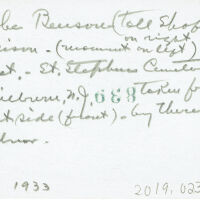 be Benson (tall shaf
on right
ison. (monument on left)
et, - St. Stephens Cemete
ilburn, N.J. 689 taken f
t side (front). - by There
bnor.
1933 2019.023